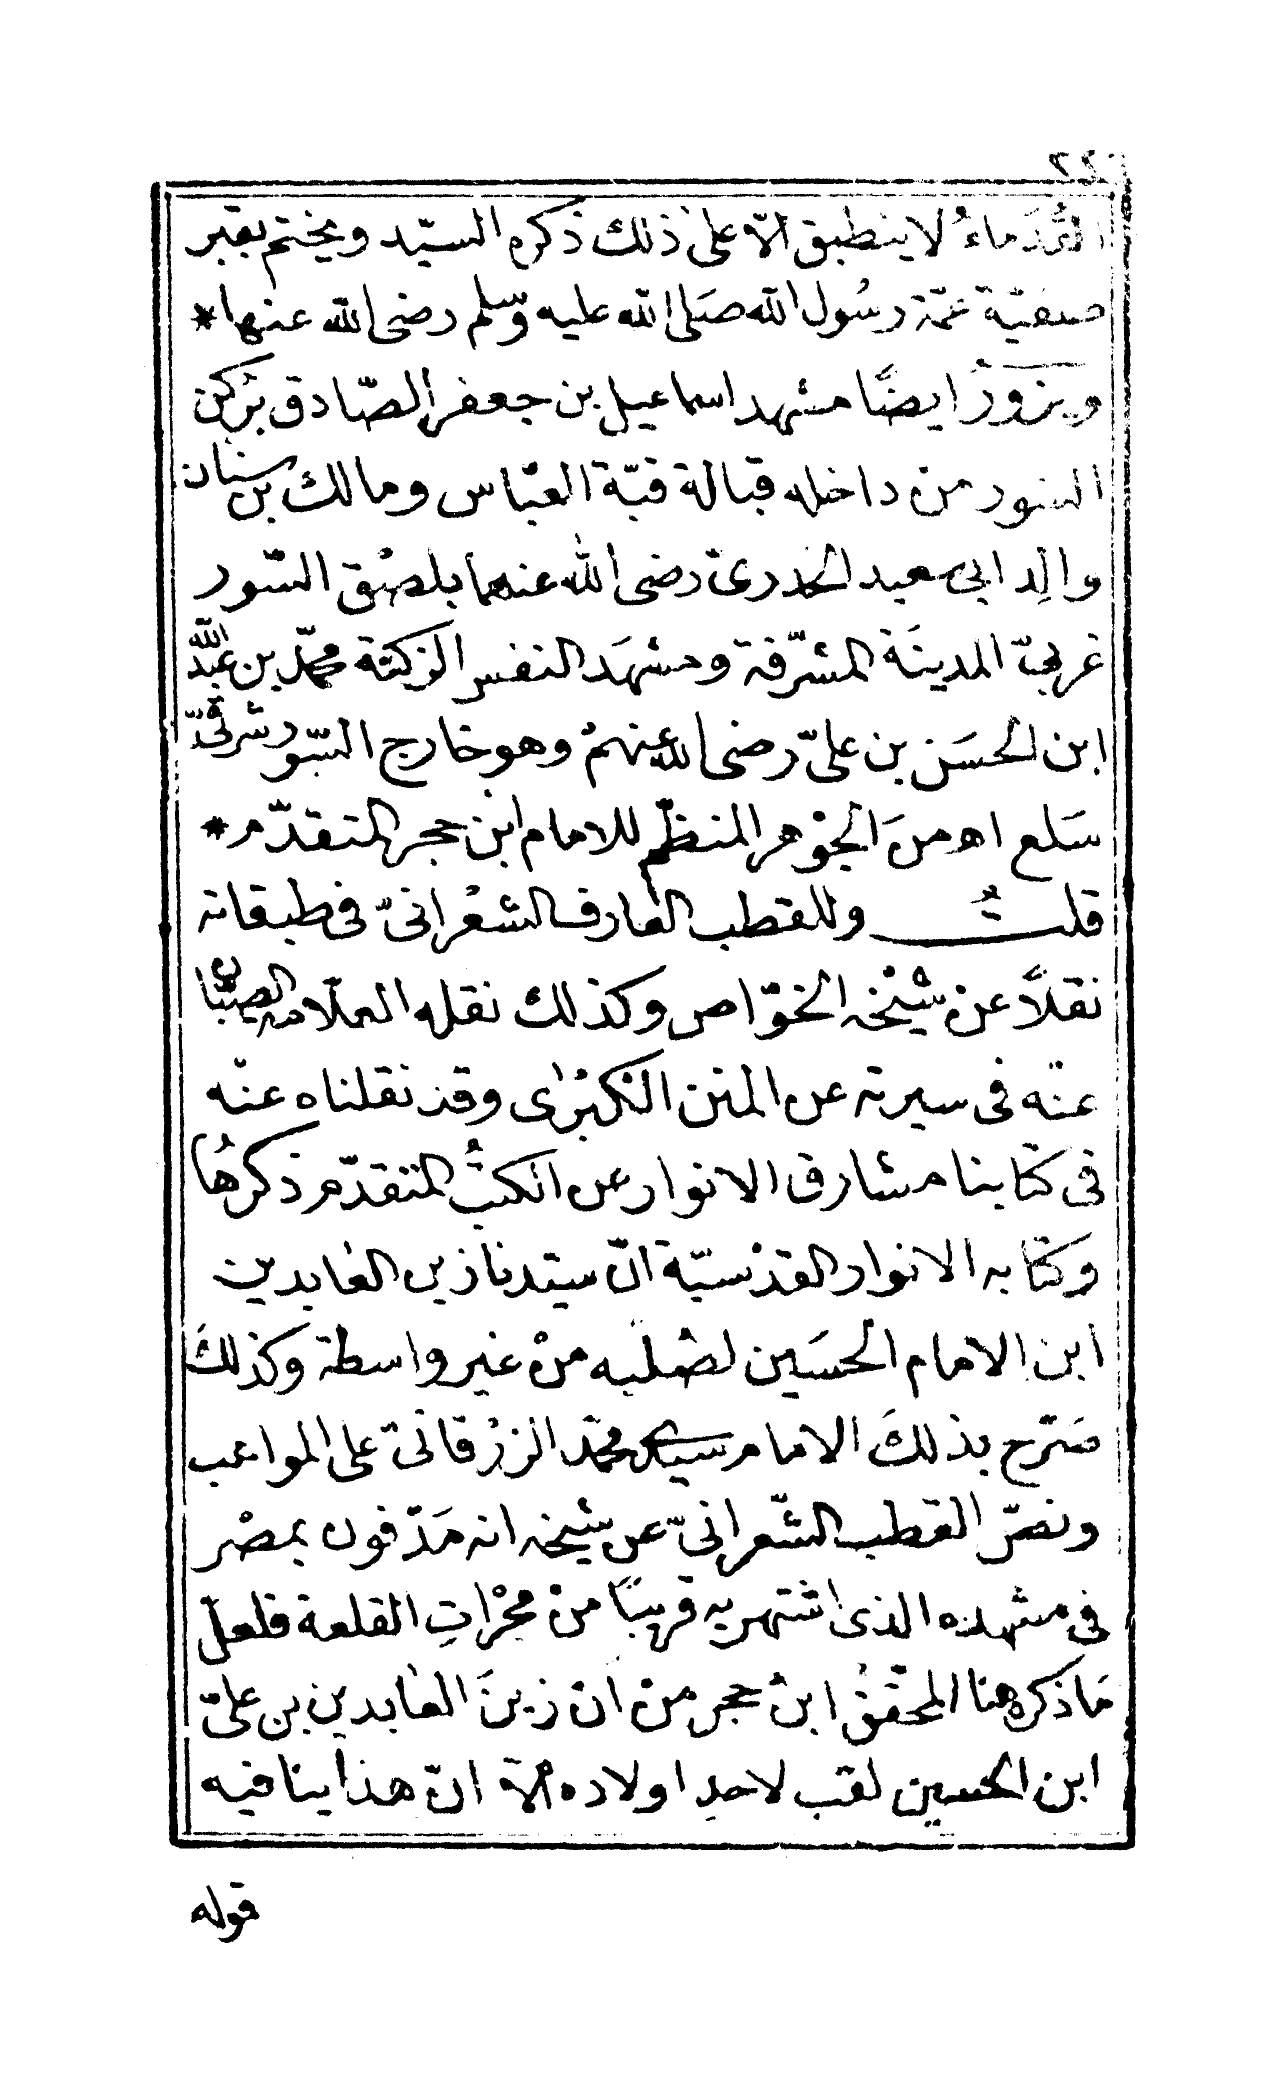 القُدَماءُ لا ينطبق الّا على ذلك ذكره السيّد ويختم بقبر
صفيّة عمّة رسُول الله صَلى الله عليه وسّلم رضى الله عنها *
ويزورُ ايضًا مشهد اسماعيل بن جعفر الصّادق بُركن
السور من داخله قبالة قبّة العبّاس ومالك بن سنان
والِد ابى سعيد الخدرىّ رضى الله عنهما بلصْق السّور
غربىّ المدينَة المشرّفة ومشهَد النفس الزكيّة محمّد بن عبد الله
ابن الحسَن بن علىّ رضى الله عنهمْ وهو خارج السّور شرقىّ
سَلع اه منَ الجوْهر المنظّم للامام ابن حجر المتقدّم *
قلتُ وللقطب العارف الشعْرانىّ فى طبقاته
نقلًا عن شيْخه الخوّاص وكذلك نقله العلّامه الصبّان
عنه فى سيرته عن المنن الكبْرٰى وقد نقلناه عنه
فى كتابنا مشارق الانوار عن الكتُب المتقدّم ذكرهُا
وكتابه الانوار القدْسيّة انّ سيّدنا زين العٰابدين
ابن الامام الحسَين لصُلبه منْ غير واسطة وكذلكَ
صَرّح بذلكَ الامام سيدى محمّد الزرْقانىّ على المواهب
ونصّ القطب الشّعرانىّ عن شيخه انه مَدْفون بمصْر
فى مشهده الذى اشتهر به قريبًا منْ مجْراتِ القلعة فلعلّ
مَا ذكره هنا المحقّقُ ابنُ حجر منْ انْ زينَ العٰابدين بن علىّ
ابن الحسين لقب لاحدِ اولاده الّا انّ هذا ينافيه
قوله